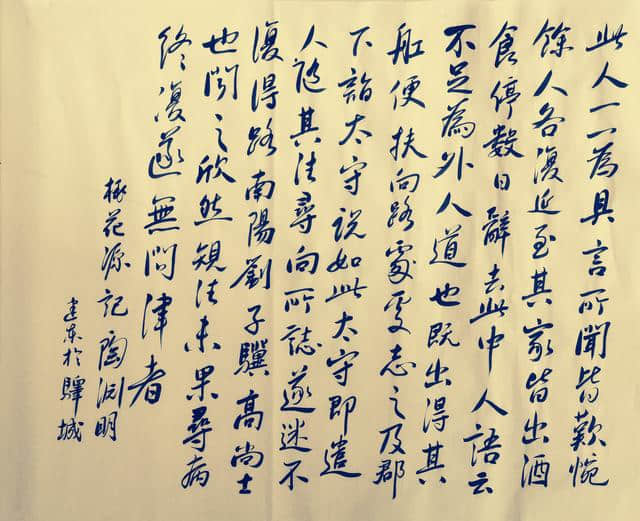 此人一一為具言所聞皆歎惋
餘人各復延至其家皆出酒
食停數日辭去此中人語云
不足為外人道也既出得其
舡便扶向路處處志之及郡
下詣太守說如此太守即遣
人隨其往尋向所誌遂迷不
復得路南陽劉子驥高尚士
也聞之欣然規往未果尋病
終復遂無問津者
桃花源記 陶渕明
建東於驛城